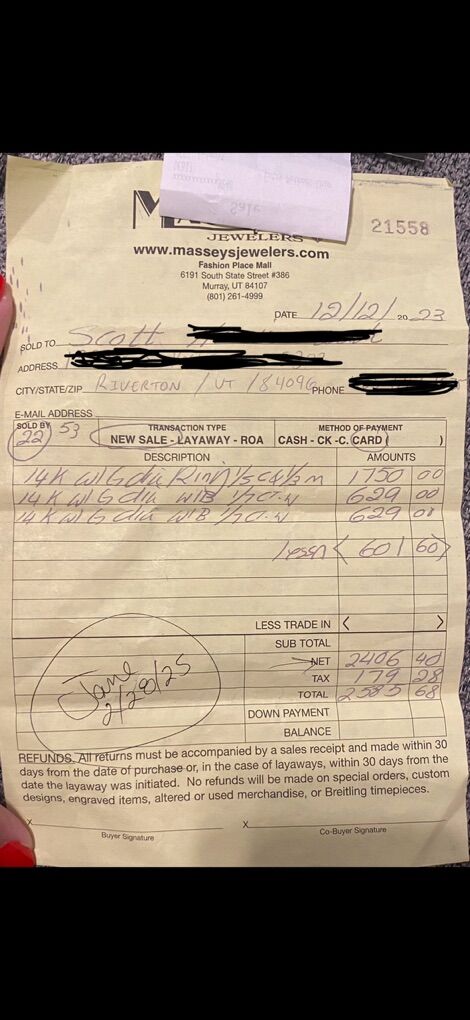 M
JEWELERS
21558
www.masseysjewelers.com
Fashion Place Mall
6191 South State Street #386
Murray, UT 84107
(801) 261-4999
DATE 12/12/ 20 23
SOLD TO Scott
ADDRESS
CITY/STATE/ZIP RIVERTON / UT / 84096 PHONE
E-MAIL ADDRESS
SOLD BY 22 53 TRANSACTION TYPE NEW SALE - LAYAWAY - ROA METHOD OF PAYMENT CASH - CK -C. CARD ( )
DESCRIPTION AMOUNTS
14K W/G dia Ring 1/5 1750 00
14K W/G dia W/B 1/7 629 00
14K W/G dia W/B 1/7 629 00
< 601 60 >
LESS TRADE IN < >
SUB TOTAL
NET 2406 40
TAX 179 28
TOTAL 2585 68
Jane
2/20/25
DOWN PAYMENT
BALANCE
REFUNDS. All returns must be accompanied by a sales receipt and made within 30
days from the date of purchase or, in the case of layaways, within 30 days from the
date the layaway was initiated. No refunds will be made on special orders, custom
designs, engraved items, altered or used merchandise, or Breitling timepieces.
X X
Buyer Signature Co-Buyer Signature